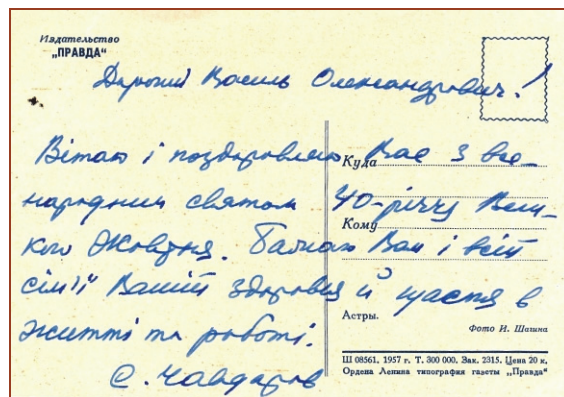 Издательство
„ПРАВДА“
Дорогий Василь Олександрович!
Вітаю і поздоровляю Вас з все-
народним святом 40-річчу Вели-
кого Жовтня. Бажаю Вам і всій
сім'ї Вашій здоровья й щастя в
житті та роботі.
С. Чавдаров
Куда
Кому
Астры.
Фото И. Шагина
Ш 08561, 1957 г. Т. 300 000. Зак. 2315. Цена 20 к.
Ордена Ленина типография газеты „Правда“